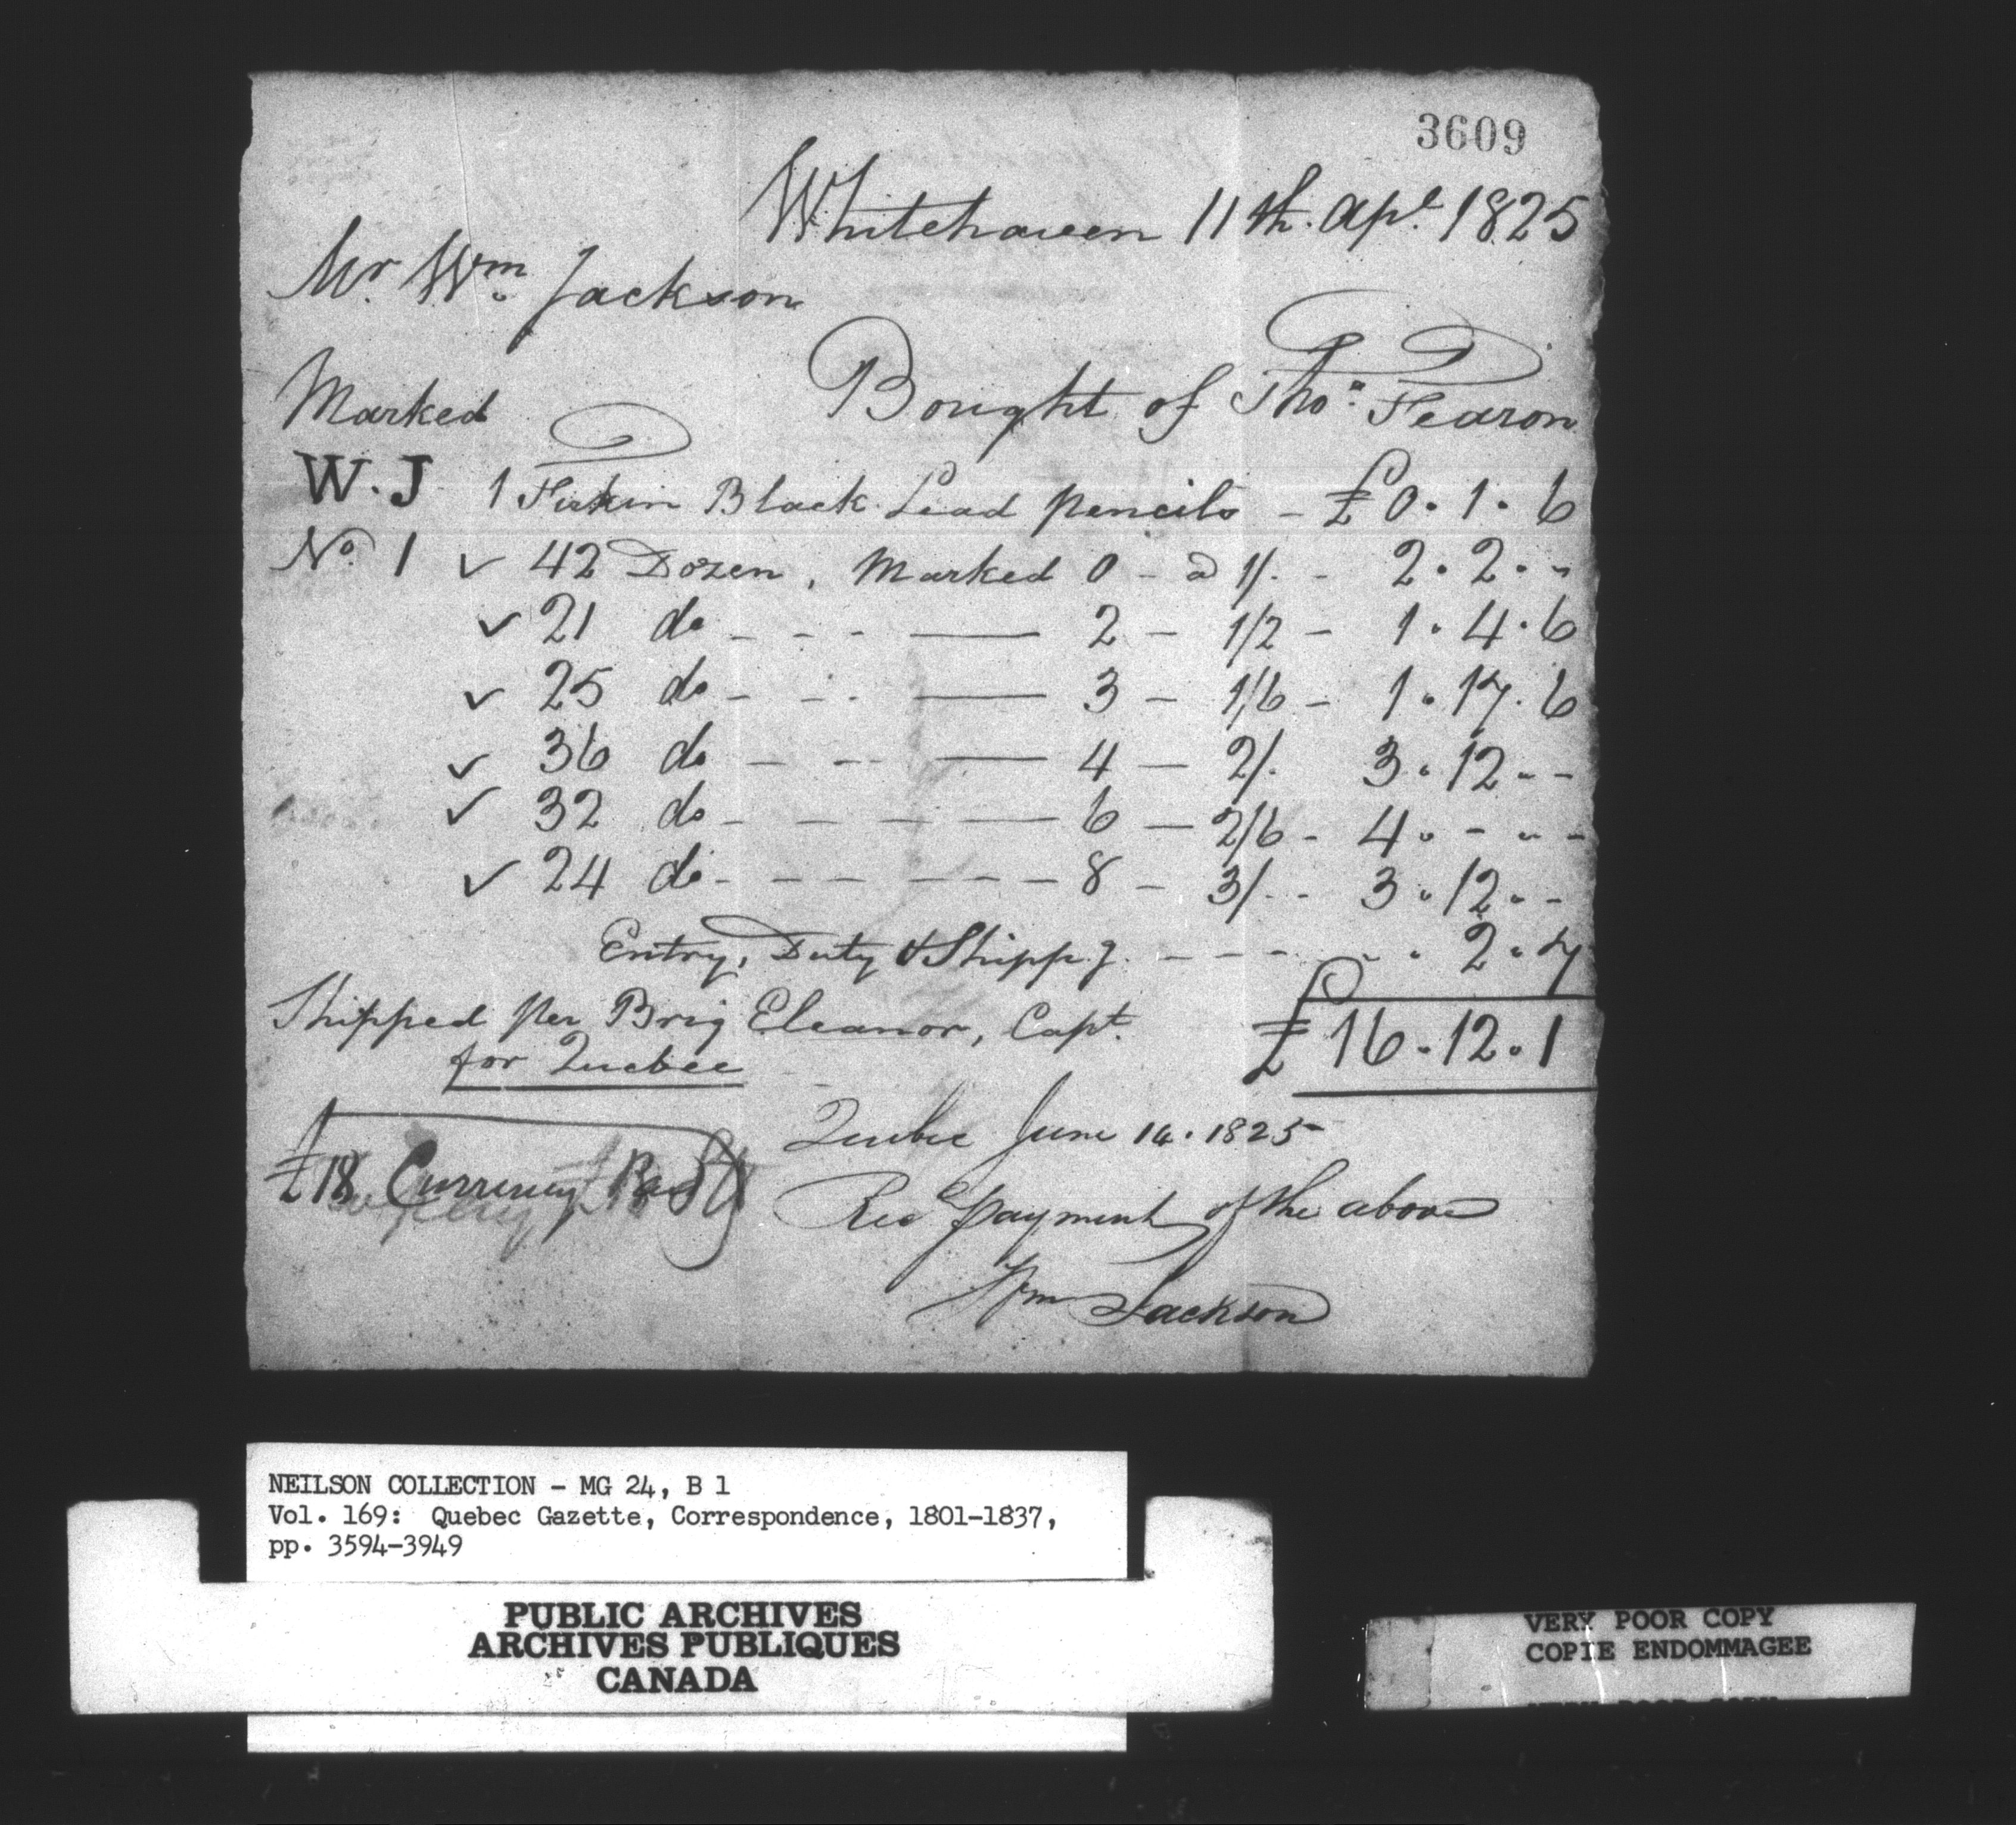 3609
Whitehaven 11th. Apl. 1825
Mr. Wm. Jackson
Bought of Thos. Fearon
Marked
W. J 1 Firkin Black Lead pencils - £0. 1. 6
No. 1 ✓ 42 Dozen, Marked 0 - a 1/. - 2. 2. -
✓ 21 do - - - — 2 - 1/2 - 1. 4. 6
✓ 25 do - - - — 3 - 1/6 - 1. 17. 6
✓ 36 do - - - — 4 - 2/. 3. 12. -
✓ 32 do - - - — 6 - 2/6 - 4. - -
✓ 24 do - - - - - - 8 - 3/. - 3. 12. -
Entry, Duty & Shippg. - - - . . 2. 7
Shipped per Brig Eleanor, Capt.
for Quebec
£ 16. 12. 1
Quebec June 14. 1825
£18 Currency
Recd payment of the above
Wm Jackson
NEILSON COLLECTION - MG 24, B 1
Vol. 169: Quebec Gazette, Correspondence, 1801-1837,
pp. 3594-3949
PUBLIC ARCHIVES
ARCHIVES PUBLIQUES
CANADA
VERY POOR COPY
COPIE ENDOMMAGEE
VERY POOR COPY